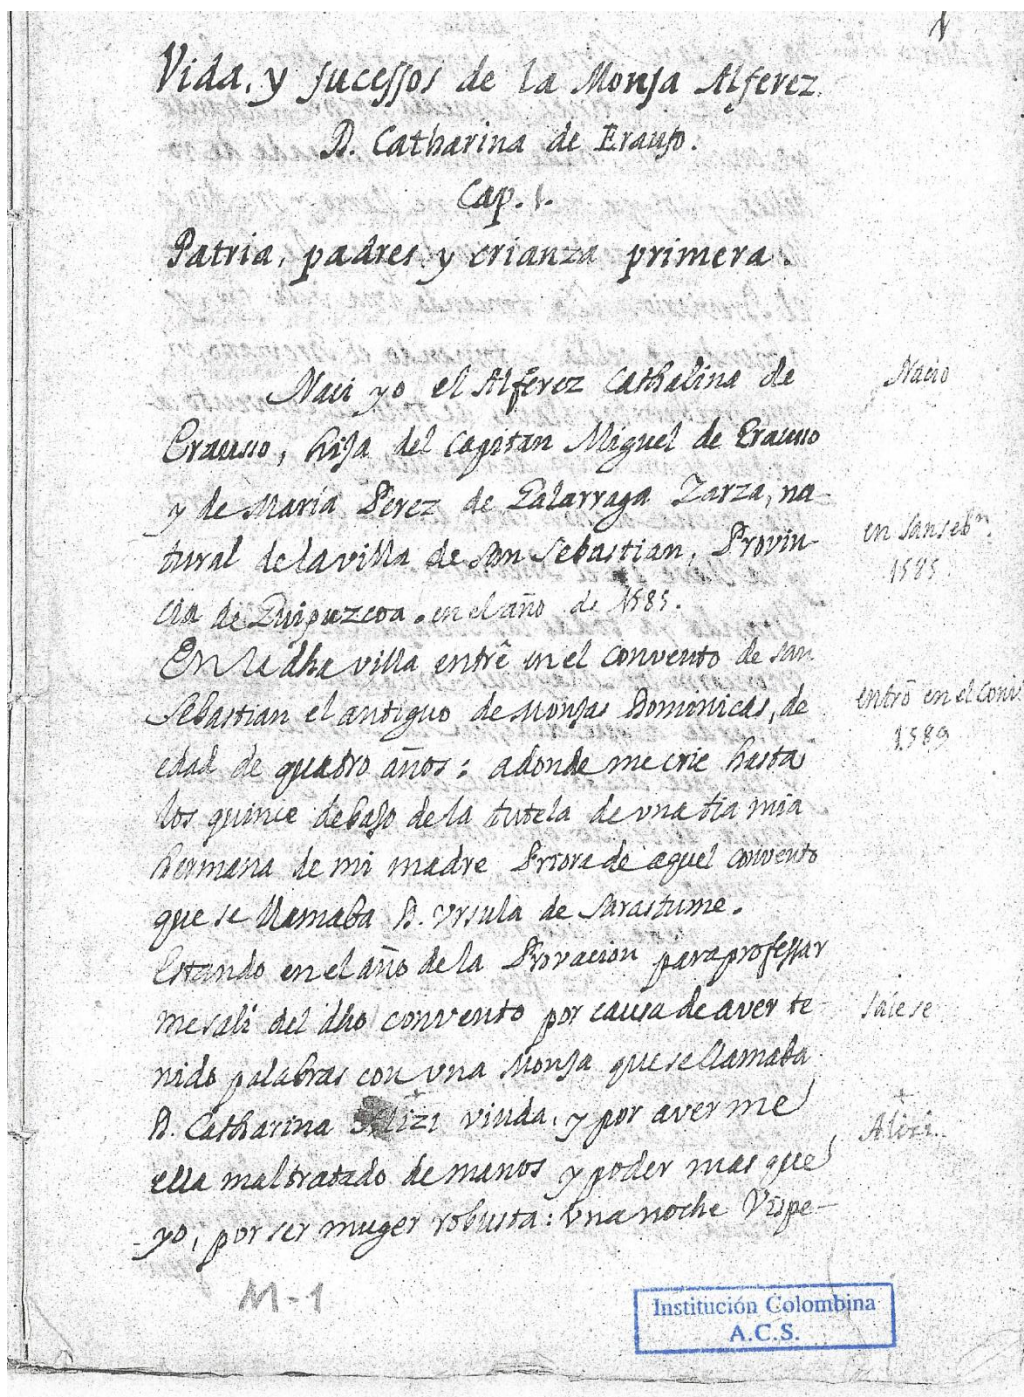 1
Vida, y sucessos de la Monja Alferez
D. Catharina de Erauso.
Cap. 1.
Patria, padres, y crianza primera.
Naci yo el Alferez Cathalina de
Erauso, hija del Capitan Miguel de Erauso
y de Maria Perez de Galarraga Zarza, na-
tural de la villa de San Sebastian, Provin-
cia de Guipuzcoa. en el año de 1585.
En la dha villa entrê en el convento de San
Sebastian el antiguo de Monjas Dominicas, de
edad de quatro años: adonde me crie hasta
los quince debajo de la tutela de una tia mia
hermana de mi madre Priora de aquel convento
que se llamaba D. Vrsula de Sarastume.
Estando en el año de la Provacion para professar
me salí del dho convento por causa de aver te
nido palabras con vna Monja que se llamaba
D. Catharina Alizi viuda, y por averme
ella maltratado de manos y poder mas que
yo, por ser muger robusta: Una noche Vispe-
Nacio
en San sebn.
1585.
entrô en el Conv
1589
salese
+
Alizi.
M-1
Institución Colombina
A.C.S.